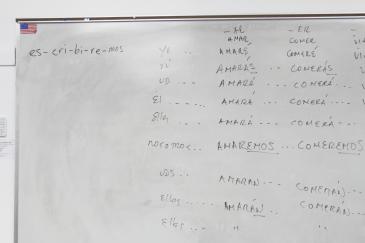 - AR - ER -
AMAR COMER
es-cri-bi-re-mos YO .. AMARÉ COMERÉ
TÚ AMARÁS ... COMERÁS
UD ... AMARÁ ... COMERÁ ...
Él ...... AMARÁ .... COMERÁ ....
Ella .... AMARÁ .... COMERÁ ....
nosotros .. AMAREMOS ... COMEREMOS
UDS .. AMARÁN ... COMERÁN ...
Ellos .... AMARÁN .. COMERÁN ...
Ellas .... " "